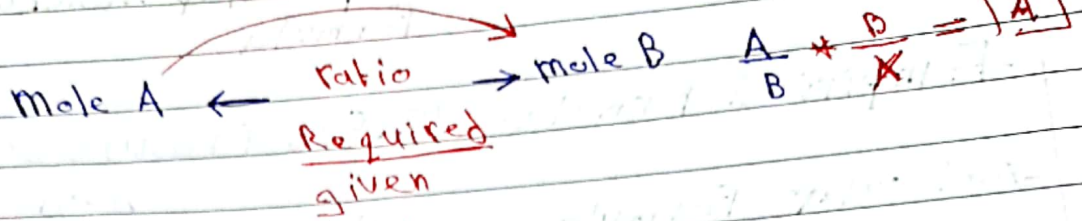 mole A ← ratio → mole B A/B * B/X = A
Required
given